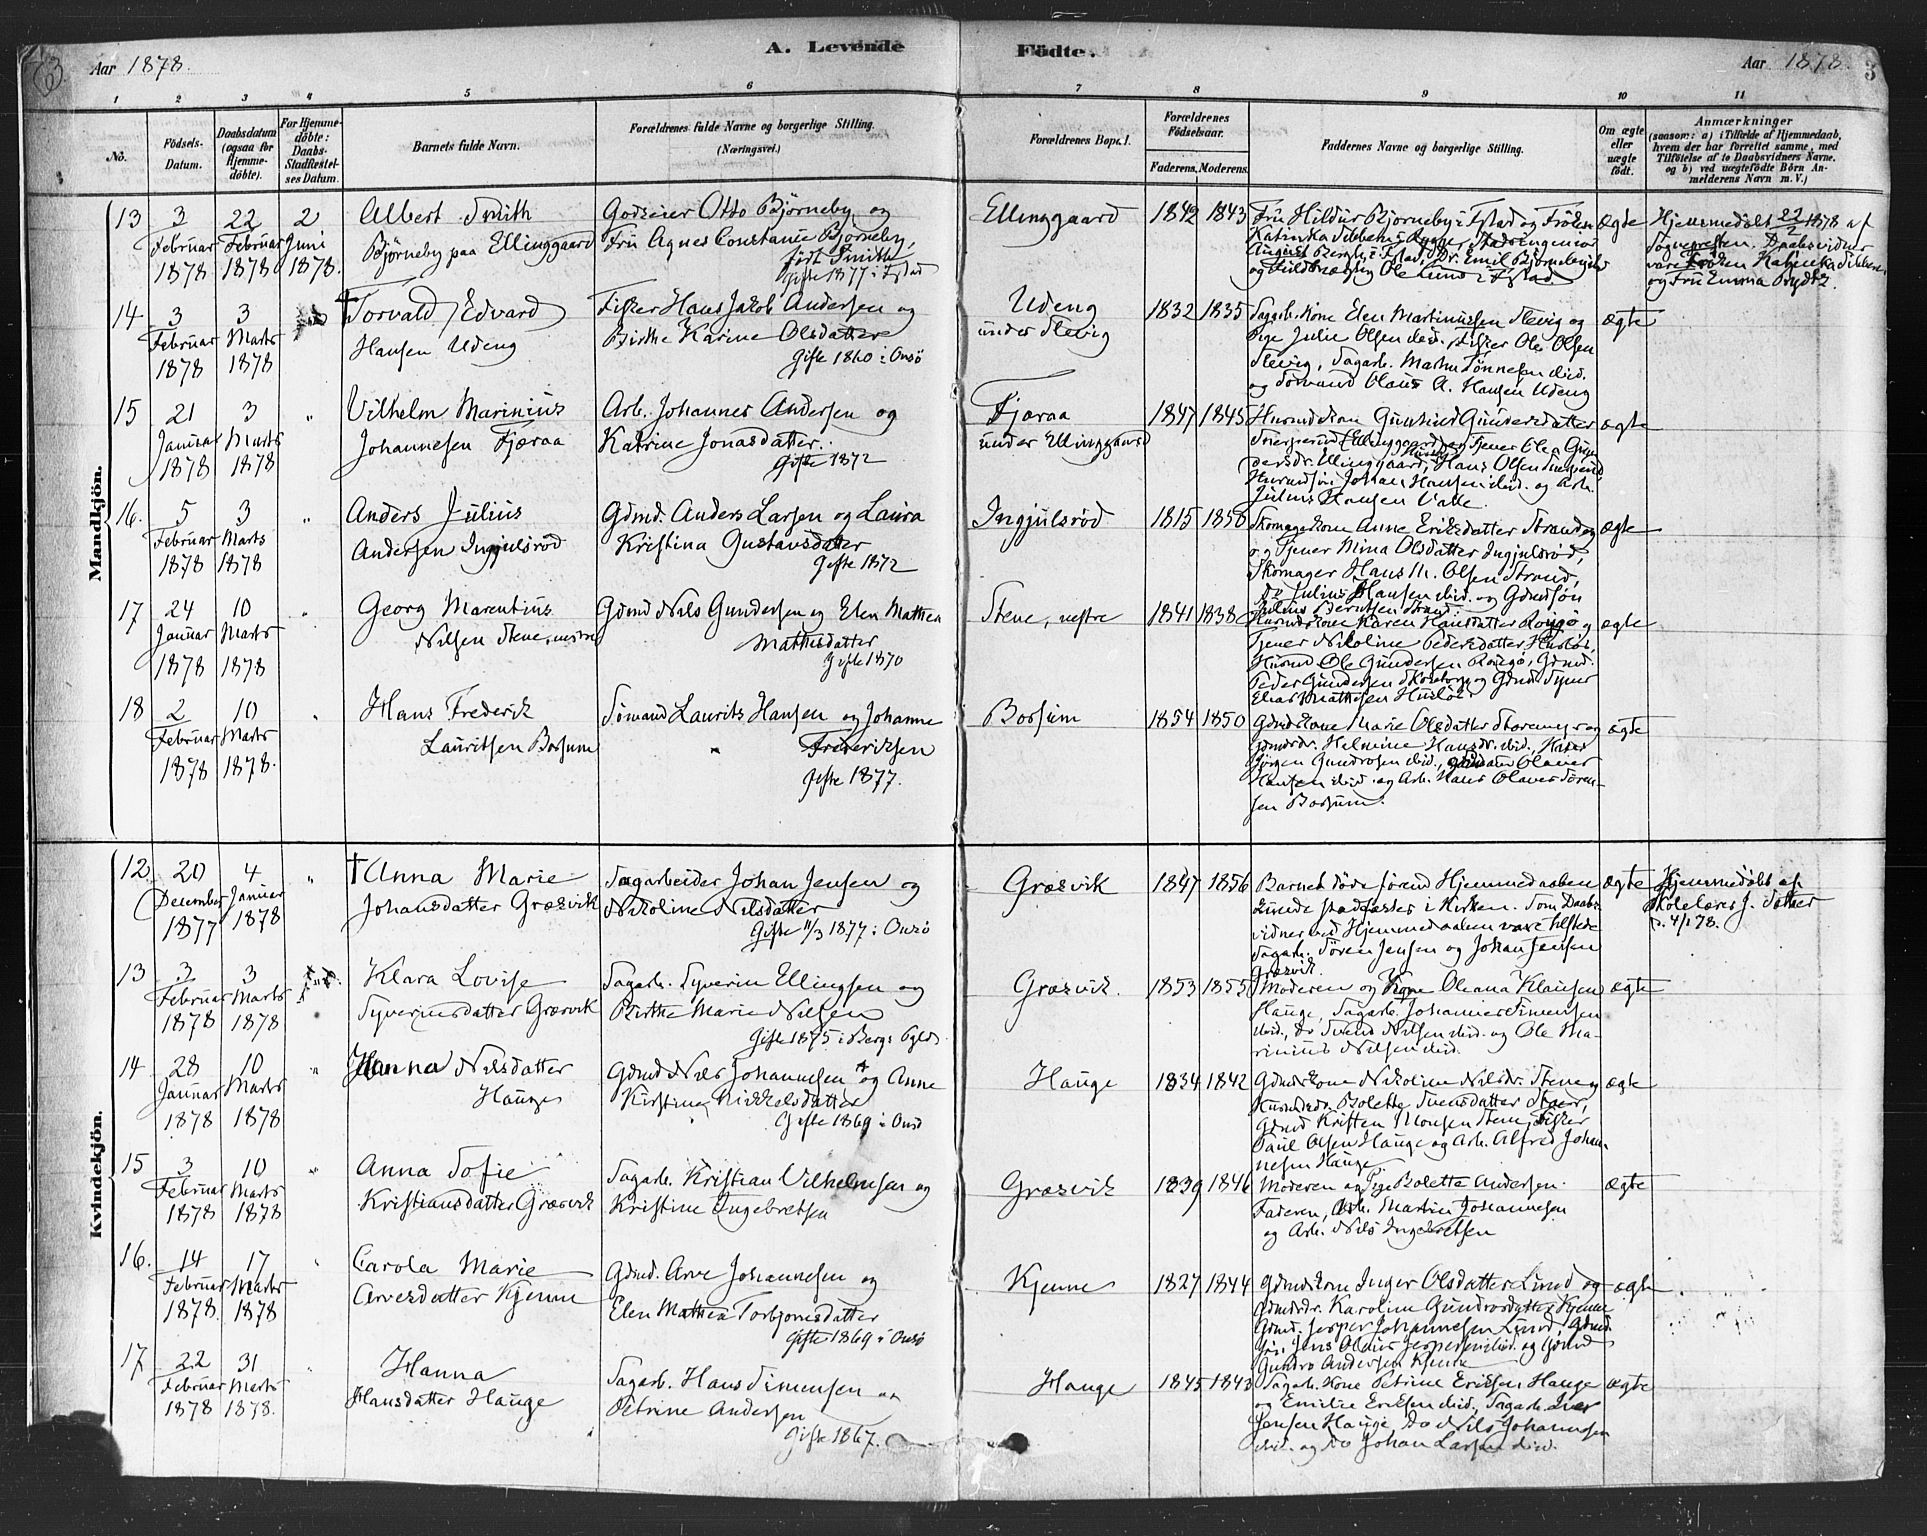 63
A. Levende
Födte.
Aar 1878.
Aar 1878.
3
1 2 3 4 5 6 7 8 9 10 11
No.
Födsels-Datum.
Daabsdatum (ogsaa for Hjemmedöbte).
For Hjemmedöbte: Daabs-Stadfæstelses Datum.
Barnets fulde Navn.
Forældrenes fulde Navne og borgerlige Stilling.
(Næringsvei.)
Forældrenes Bopæl.
Forældrenes Födselsaar.
Faderens. Moderens.
Faddernes Navne og borgerlige Stilling.
Om ægte eller uægte födt.
Anmærkninger
(saasom: a) i Tilfælde af Hjemmedaab, hvem der har forrettet samme, med Tilföielse af to Daabsvidners Navne, og b) ved uægtefödte Börn Anmelderens Navn m. V.)
Mandkjön.
13 3 Februar 1878 22 Februar 1878 2 Juni 1878.
Albert Smith
Bjørneby paa Ellinggaard
Godseier Otto Bjørneby og
Fru Agnes Constance Bjørneby,
født Smith
Gifte 1877 i Fstad
Ellinggaard 1842 1843
Fru Hildur Bjørneby i Fstad og Frøken
Katinka Sibbern, Rygge, Stadsingeniør
August Bergh i Fstad, Dr. Emil Bjørneby
Ole Lund i Fstad
ægte
Hjemmedøbt 22/2 1878 af
Sognepresten. Daabsvidner
vare Frøken Katinka Sibbern
og Fru Emma Brydtz.
14 3 Februar 1878 3 Marts 1878
† Torvald Edvard
Hansen Udeng
Fisker Hans Jakob Andersen og
Birthe Karine Olsdatter
Gifte 1860 i Onsø
Udeng
under Slevig
1832 1835
Sagarb. kone Elen Martinussen Slevig og
Pige Julie Olsen ibid., Fisker Ole Olsen
Slevig, Sagarb. Martin Tønnesen ibid.
og Sømand Olaus A. Hansen Udeng
ægte
15 21 Januar 1878 3 Marts 1878 "
Vilhelm Marinius
Johannesen Fjæraa
Arb. Johannes Andersen og
Katrine Jonasdatter.
Gifte 1872
Fjæraa
under Ellinggaard
1847 1845
Husmdskone Gunhild Gundersdatter
Ellinggaard og Tjener Olea Gun-
dersdr. Ellinggaard, Hans Olsen
Husmdsøn Johan Hansen ibid. og Arb.
Julius Hansen Valle.
ægte
16. 5 Februar 1878 3 Marts 1878 "
Anders Julius
Andersen Ingjulsrød
Gdmd. Anders Larsen og Laura
Kristina Gustavsdatter
Gifte 1872
Ingjulsrød 1815 1850
Skomagerkone Anne Eriksdatter Strand
og Tjener Mina Olsdatter Ingjulsrød,
Skomager Hans M. Olsen Strand,
Do Julius Hansen ibid. og Gdmdsøn
Julius Berntsen Strand.
ægte
17 24 Januar 1878 10 Marts 1878 "
Georg Marentius
Nilsen Stene, vestre
Gdmd Nils Gundersen og Elen Mathea
Mathisdatter
Gifte 1870
Stene, vestre 1841 1838
Husmdskone Karen Hansdatter Rougø og
Tjener Nikoline Pedersdatter Husløs,
Husmd Ole Gundersen Rougø, Gdmd.
Peder Gundersen og Gdmd. Synr
Elias Mathisen Husløs
ægte
18 2 Februar 1878 10 Marts 1878. "
Hans Frederik
Lauritsen Borsum
Sømand Laurits Hansen og Johanne
" Frederiksen
Gifte 1877.
Borsum 1854 1850
Gdmdskone Marie Olsdatter og
Gdmdsdr. Helmine Hansdr. ibid.,
Jørgen Gundrosen ibid., Olaves
Hansen ibid. og Arb. Hans Olaves Søren-
sen Borsum.
ægte
Kvindekjön.
12. 20 December 1877 4 Januar 1878 "
† Anna Marie
Johansdatter Græsvik
Sagarbeider Johan Jensen og
Nikoline Nilsdatter
Gifte 11/3 1877 i Onsø
Græsvik 1847 1856
Barnet døde førend Hjemmedaaben
kunde stadfæstes i Kirken. Som Daabs-
vidner ved Hjemmedaaben vare tilstede
Sagarb. Søren Jensen og Johan Jensen
Græsvik.
ægte
Hjemmedøbt af
Skolelærer J. Sæther
4/1 78.
13 3 Februar 1878 3 Marts 1878
Klara Lovise
Syverinsdatter Græsvik
Sagarb. Syverin Ellingsen og
Birthe Marie Nilsen
Gifte 1875 i Bergs Pgld.
Græsvik. 1853 1855
Moderen og Pige Oleana Klausen
Hauge, Sagarb. Johannes Simensen
ibid., Do Svend Nilsen ibid. og Ole Ma-
rinius Nilsen ibid.
ægte
14 28 Januar 1878 10 Marts 1878 "
Hanna Nilsdatter
Hauge
Gdmd Nils Johannesen og Anne
Kirstine Mikkelsdatter
Gifte 1869 i Onsø
Hauge 1834 1842
Gdmdskone Nikoline Nilsdr. Stene,
Husmdsdr. Bolette Svensdatter
Gdmd Kristen Monsen Stene, Fisker
Paul Olsen Hauge og Arb. Alfred Johan-
nesen Hauge
ægte
15 3 Februar 1878 10 Marts 1878 "
Anna Sofie
Kristiansdatter Græsvik
Sagarb. Kristian Vilhelmsen og
Kristine Ingebretsen
Græsvik 1839 1846
Moderen og Pige Bolette Andersen.
Faderen, Arb. Martin Johannesen
og Arb. Nils Ingebretsen
ægte
16. 14 Februar 1878. 17 Marts 1878 "
Carola Marie
Arvesdatter Kjenne
Gdmd. Arve Johannesen og
Elen Mathea Torbjørnsdatter
Gifte 1869 i Onsø
Kjenne 1827 1844
Gdmdskone Inger Olsdatter Lund og
Gdmdsdr. Karoline Gundrosdatter Kjenne
Gdmd. Jesper Johannesen Lund, Gdmd-
søn Jens Olaus Jespersen ibid. og Gdmd
Gundro Andersen Kjenne
ægte
17 22 Februar 1878 31 Marts 1878. "
Hanna
Hansdatter Hauge
Sagarb. Hans Simensen og
Petrine Andersen
Gifte 1867.
Hauge 1845 1843
Sagarb. kone Petrine Eriksen Hauge
og Emilie Eriksen ibid., Sagarb. Iver
Jensen Hauge, Do Nils Johannesen
ibid. og Do Johan Larsen ibid.
ægte